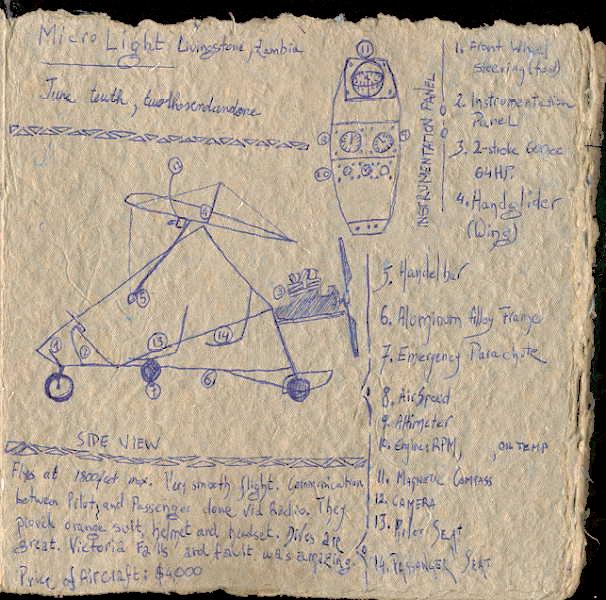 Micro Light, Livingstone, Zambia
June tenth, twothosendandone
11
8
9
10
INSTRUMENTATION PANEL
1. Front Wheel
steering (foot)
2. Instrumentation
Panel
3. 2-stroke
64 HP.
4. Handglider
(Wing)
5. Handelbar
6. Aluminum Alloy Frame
7. Emergency Parachute
8. AirSpeed
9. Altimeter
10. Engines RPM, , OIL TEMP
11. MAGNETIC COMPASS
12. CAMERA
13. PILOT SEAT
14. PASSENGER SEAT
12
4
5
3
1
2
13
14
7
6
SIDE VIEW
Flys at 1800feet max. Very smooth flight. Communication
between Pilot, and Passenger done via Radio. They
provide orange suit, helmet and headset. Dives are
great. Victoria Falls and fault was amazing.
Price of Aircraft: $4000